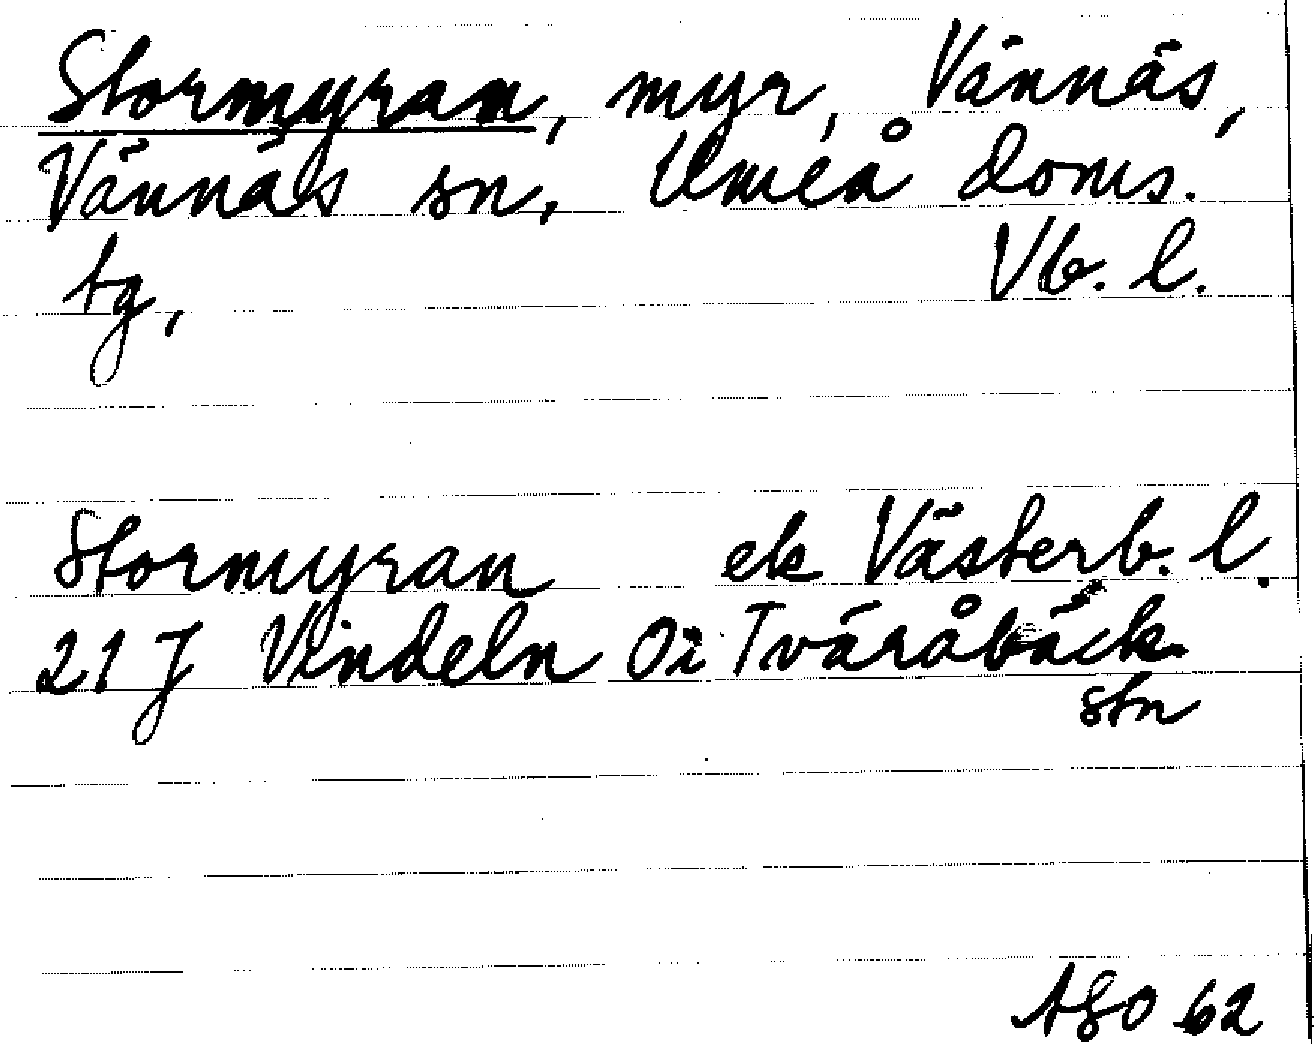 Stormyran, myr, Vännäs,
Vännäs sn, Umeå doms.
tg, Vb. l.
Stormyran ek Västerb. l.
21 J Vindeln Oi Tväråbäck
stn
ASO 62